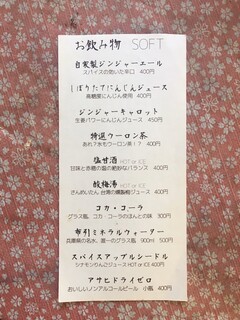 お飲み物 SOFT
自家製ジンジャーエール
スパイスの効いた辛口 400円
しぼりたてにんじんジュース
高糖度にんじん使用 400円
ジンジャーキャロット
生姜パワーにんじんジュース 450円
特選ウーロン茶
あれ?水もウーロン茶!? 400円
塩甘酒 HOT or ICE
甘味と赤穂の塩の絶妙なバランス 400円
酸梅湯 HOT or ICE
さんめいたん 台湾の燻製梅ジュース 400円
コカ・コーラ
グラス瓶、コカ・コーラのほんとの味 300円
布引ミネラルウォーター
兵庫県の名水、唯一のグラス瓶 900ml 500円
スパイスアップルシードル
シナモンりんごジュース HOT or ICE 400円
アサヒドライゼロ
おいしいノンアルコールビール 小瓶 400円